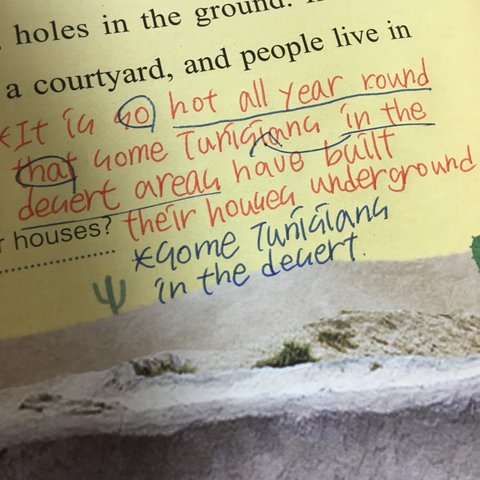 holes in the ground.
a courtyard, and people live in
*It is so hot all year round
that some Tunisians in the
desert areas have built
r houses? their houses underground
*some Tunisians
in the desert.